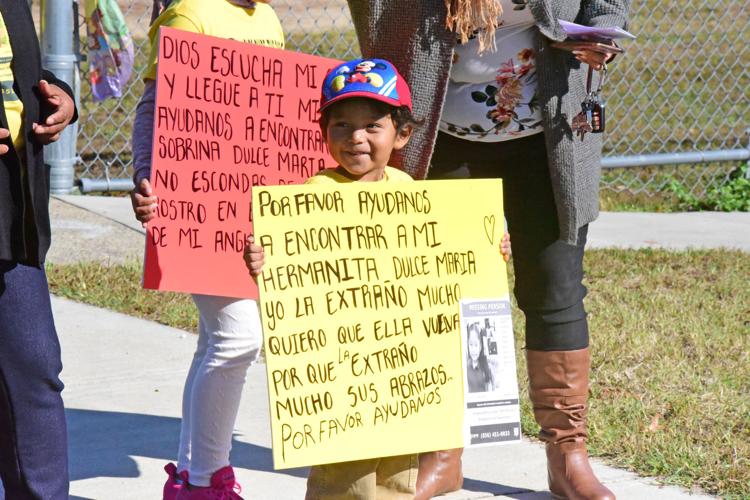 DIOS ESCUCHA MI
Y LLEGUE A TI MI
AYUDANOS A ENCONTRAR
SOBRINA DULCE MARIA
NO ESCONDAS
ROSTRO EN
DE MI ANG
POR FAVOR AYUDANOS
A ENCONTRAR A MI
HERMANITA DULCE MARIA
YO LA EXTRAÑO MUCHO
QUIERO QUE ELLA VUELVA
POR QUE LA EXTRAÑO
MUCHO SUS ABRAZOS..
POR FAVOR AYUDANOS
MISSING PERSON